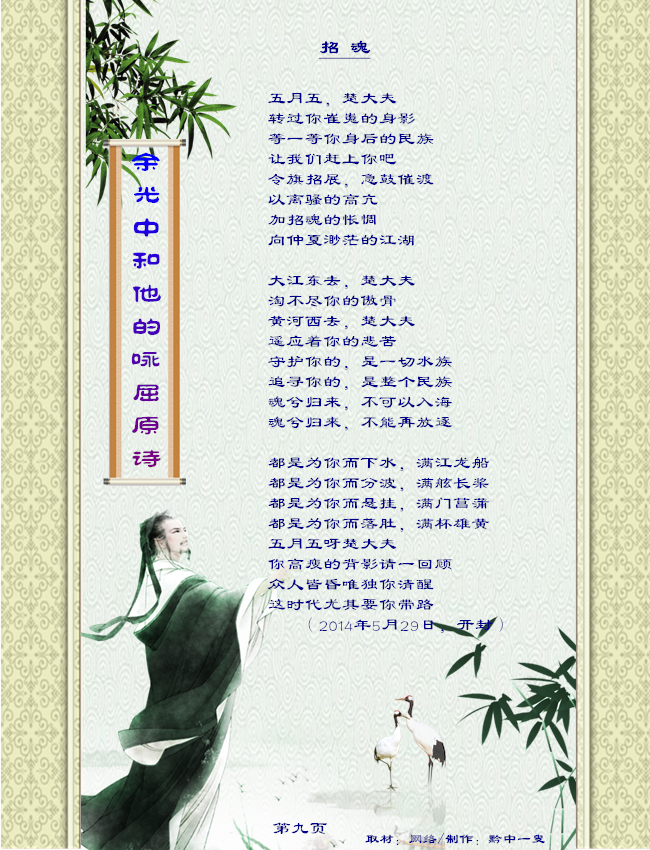 招 魂
余光中和他的咏屈原诗
五月五，楚大夫
转过你崔嵬的身影
等一等你身后的民族
让我们赶上你吧
令旗招展，急鼓催渡
以离骚的高亢
加招魂的怅惆
向仲夏渺茫的江湖
大江东去，楚大夫
淘不尽你的傲骨
黄河西去，楚大夫
遥应着你的悲苦
守护你的，是一切水族
追寻你的，是整个民族
魂兮归来，不可以入海
魂兮归来，不能再放逐
都是为你而下水，满江龙船
都是为你而分波，满舷长桨
都是为你而悬挂，满门菖蒲
都是为你而落肚，满杯雄黄
五月五呀楚大夫
你高瘦的背影请一回顾
众人皆昏唯独你清醒
这时代尤其要你带路
（2014年5月29日，开封）
第九页
取材：网络/制作：黔中一叟